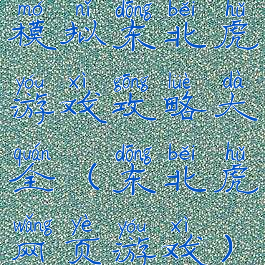 mó nǐ dōng běi hǔ
模拟东北虎
yóu xì gōng lüè dà
游戏攻略大
quán dōng běi hǔ
全(东北虎
wǎng yè yóu xì
网页游戏)